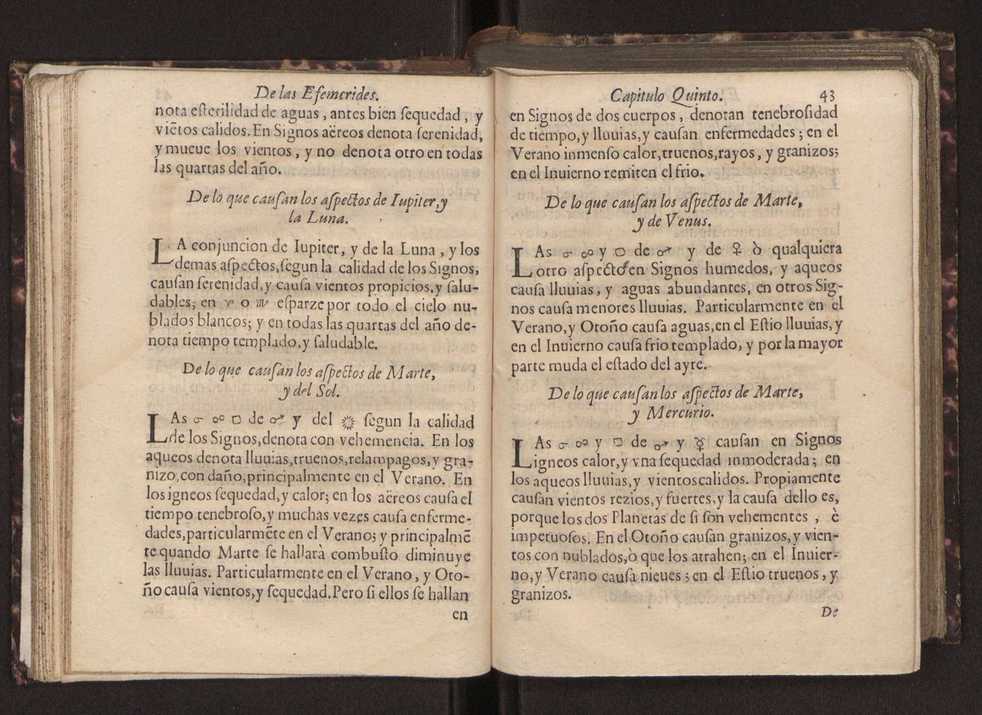 De las Efemerides.
nota esterilidad de aguas, antes bien sequedad, y
viẽtos calidos. En Signos aëreos denota serenidad,
y mueue los vientos, y no denota otro en todas
las quartas del año.
De lo que causan los aspectos de Iupiter, y
la Luna.
LA conjuncion de Iupiter, y de la Luna, y los
demas aspectos, segun la calidad de los Signos,
causan serenidad, y causa vientos propicios, y salu-
dables; en ♈ o ♏ esparze por todo el cielo nu-
blados blancos; y en todas las quartas del año de-
nota tiempo templado, y saludable.
De lo que causan los aspectos de Marte,
y del Sol.
LAs ☌ ☍ □ de ♂ y del ☼ segun la calidad
de los Signos, denota con vehemencia. En los
aqueos denota lluuias, truenos, relampagos, y gra-
nizo, con daño, principalmente en el Verano. En
los igneos sequedad, y calor; en los aëreos causa el
tiempo tenebroso, y muchas vezes causa enferme-
dades, particularmẽte en el Verano; y principalmẽ
te quando Marte se hallarà combusto diminuye
las lluuias. Particularmente en el Verano, y Oto-
ño causa vientos, y sequedad. Pero si ellos se hallan
en
Capitulo Quinto. 43
en Signos de dos cuerpos, denotan tenebrosidad
de tiempo, y lluuias, y causan enfermedades; en el
Verano inmenso calor, truenos, rayos, y granizos;
en el Inuierno remiten el frio.
De lo que causan los aspectos de Marte,
y de Venus.
LAS ☌ ☍ y □ de ♂ y de ♀ ò qualquiera
otro aspecto en Signos humedos, y aqueos
causa lluuias, y aguas abundantes, en otros Sig-
nos causa menores lluuias. Particularmente en el
Verano, y Otoño causa aguas, en el Estio lluuias, y
en el Inuierno causa frio templado, y por la mayor
parte muda el estado del ayre.
De lo que causan los aspectos de Marte,
y Mercurio.
LAS ☌ ☍ y □ de ♂ y ☿ causan en Signos
igneos calor, y vna sequedad inmoderada; en
los aqueos lluuias, y vientos calidos. Propiamente
causan vientos rezios, y fuertes, y la causa dello es,
porque los dos Planetas de si son vehementes, è
impetuosos. En el Otoño causan granizos, y vien-
tos con nublados, ò que los atrahen; en el Inuier-
no, y Verano causa nieues; en el Estio truenos, y
granizos.
De